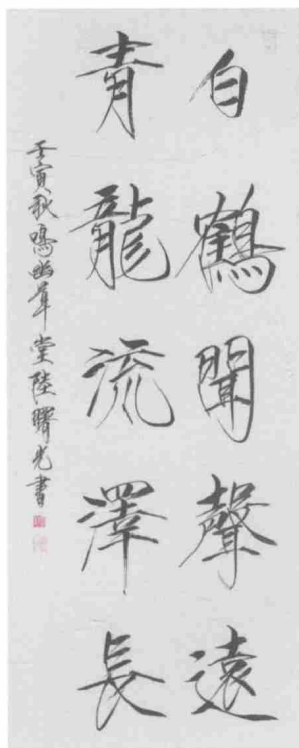 白鶴聞聲遠
青龍流澤長
壬寅秋鳴 堂陸 光書